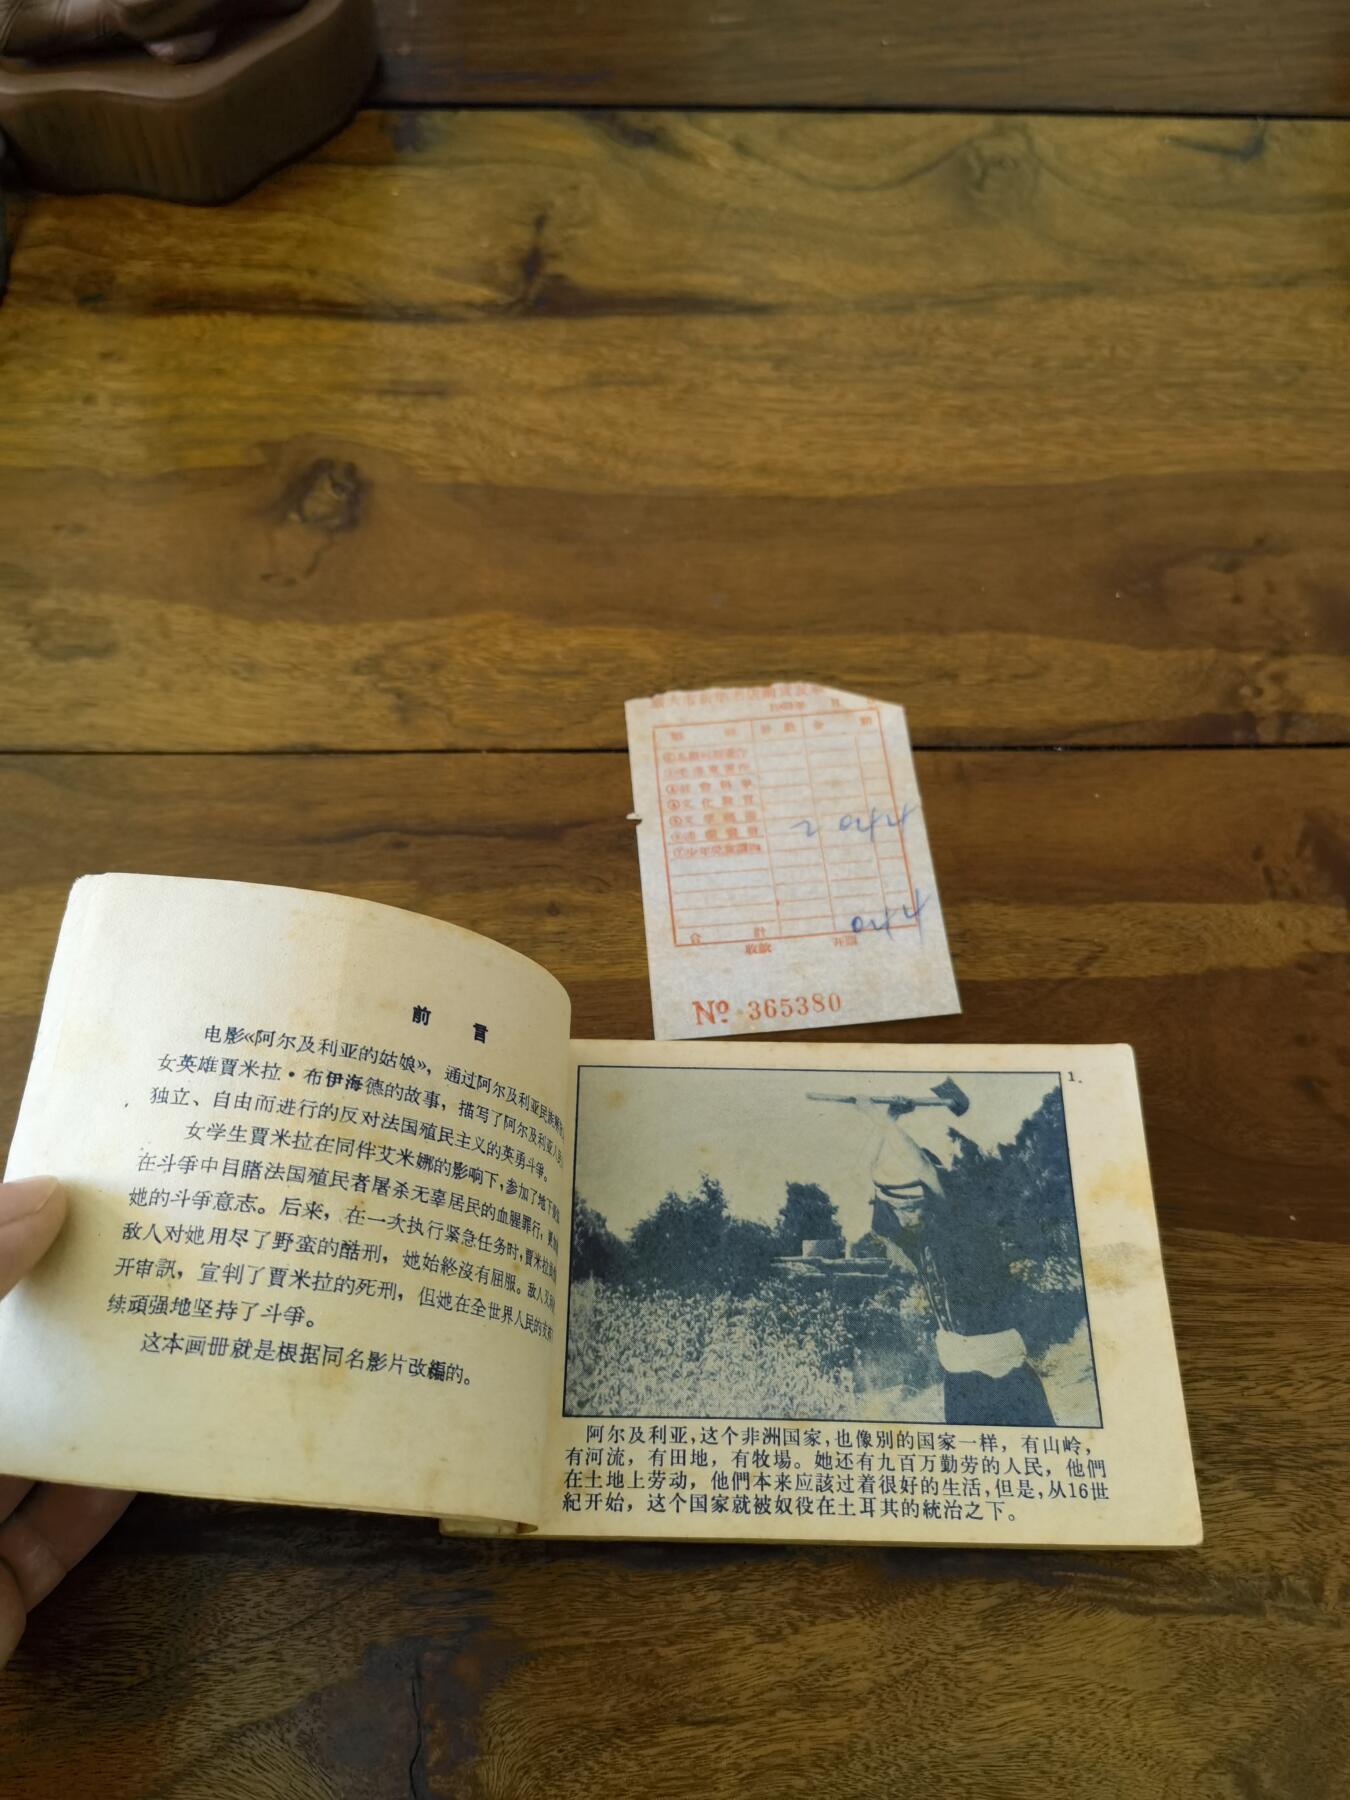 份 数
⑦少年兒童讀物
2 044
044
合 計
收款
Nº 365380
前 言
电影《阿尔及利亚的姑娘》，通过阿尔及利亚民族解
女英雄賈米拉·布伊海德的故事，描写了阿尔及利亚人民
独立、自由而进行的反对法国殖民主义的英勇斗爭。
女学生賈米拉在同伴艾米娜的影响下，参加了地下
在斗爭中目睹法国殖民者屠杀无辜居民的血腥罪行，
她的斗爭意志。后来，在一次执行紧急任务时，賈米拉
敌人对她用尽了野蛮的酷刑，她始終沒有屈服。敌人又
开审訊，宣判了賈米拉的死刑，但她在全世界人民的支
续頑强地坚持了斗爭。
这本画册就是根据同名影片改編的。
1.
阿尔及利亚，这个非洲国家，也像别的国家一样，有山岭，
有河流，有田地，有牧場。她还有九百万勤劳的人民，他們
在土地上劳动，他們本来应該过着很好的生活，但是，从16世
紀开始，这个国家就被奴役在土耳其的統治之下。